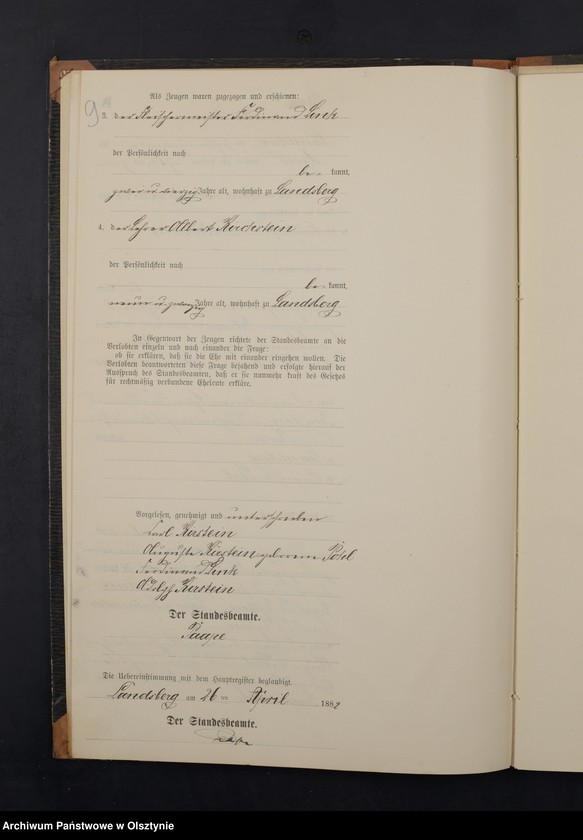 9
Als Zeugen waren zugezogen und erschienen:
3. der Fleischermeister Ferdinand Lenk
der Persönlichkeit nach
be- kannt,
zwei u. vierzig Jahre alt, wohnhaft zu Landsberg
4. der Lehrer Albert Kerstein
der Persönlichkeit nach
be- kannt,
neun u. zwanzig Jahre alt, wohnhaft zu Landsberg
In Gegenwart der Zeugen richtete der Standesbeamte an die
Verlobten einzeln und nach einander die Frage:
ob sie erklären, daß sie die Ehe mit einander eingehen wollen. Die
Verlobten beantworteten diese Frage bejahend und erfolgte hierauf der
Ausspruch des Standesbeamten, daß er sie nunmehr kraft des Gesetzes
für rechtmäßig verbundene Eheleute erkläre.
Vorgelesen, genehmigt und unterschrieben
Carl Kerstein
Auguste Kerstein geborene Posel
Ferdinand Lenk
Kerstein
Der Standesbeamte.
Paape
Die Uebereinstimmung mit dem Hauptregister beglaubigt.
Landsberg am 26 ten April 1882
Der Standesbeamte.
Paape
Archiwum Państwowe w Olsztynie